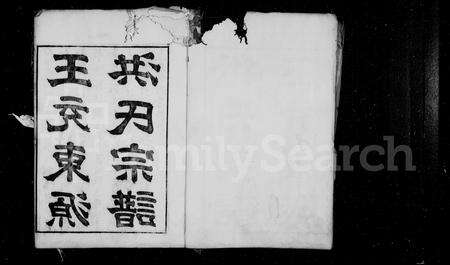 王東源
洪氏宗譜
FamilySearch